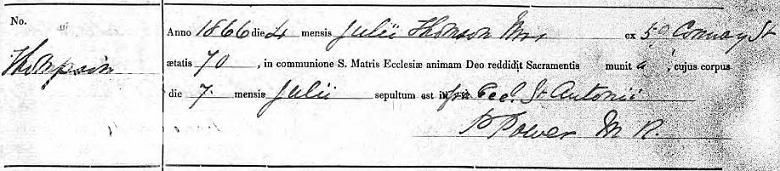 No.
Anno 1866 die 4 mensis Julii Thomson Mrs ex 59 Conway St
Thompson
ætatis 70, in communione S. Matris Ecclesiæ animam Deo reddidit Sacramentis munit a, cujus corpus
die 7. mensis Julii sepultum est in Eccl. St Antonii
P Power M R.